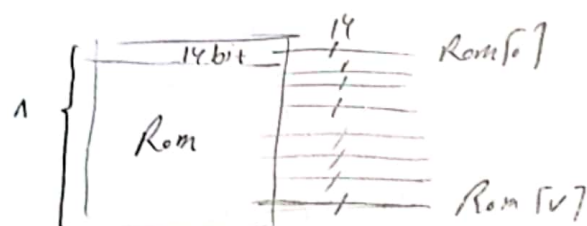 14
14 bit
Rom[0]
۸
Rom
Rom[۷]